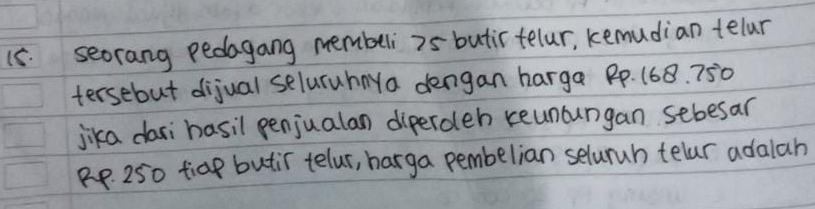 15. seorang pedagang membeli 75 butir telur, kemudian telur
tersebut dijual seluruhnya dengan harga Rp. 168.750
jika dari hasil penjualan diperoleh keuntungan sebesar
Rp. 250 tiap butir telur, harga pembelian seluruh telur adalah